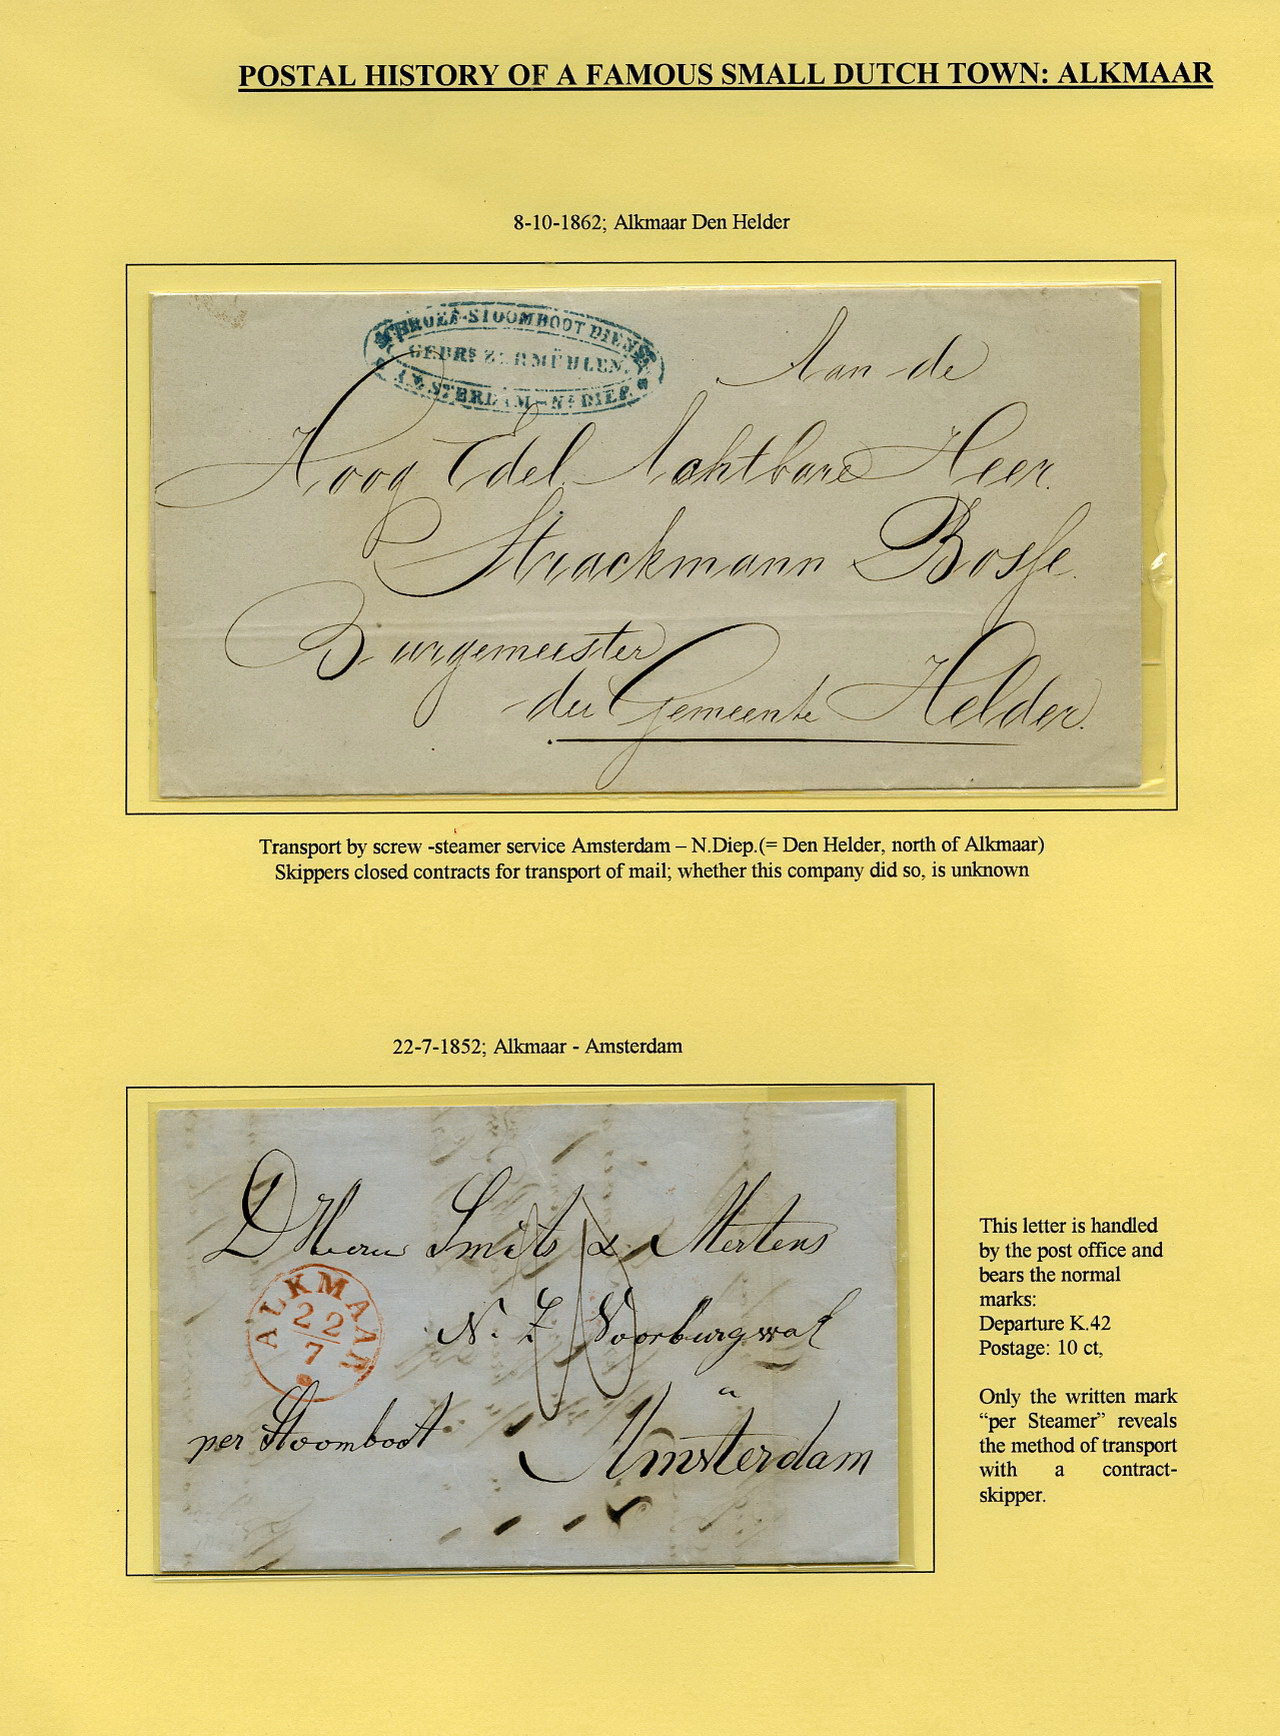 POSTAL HISTORY OF A FAMOUS SMALL DUTCH TOWN: ALKMAAR
8-10-1862; Alkmaar Den Helder
SCHROEF-STOOMBOOT DIENST
GEBRS ZURMÜHLEN.
AMSTERDAM-Nw DIEP.
Aan de
Hoog Edel Achtbare Heer.
Strackmann Bosse.
Burgemeester
der Gemeente Helder.
Transport by screw -steamer service Amsterdam – N.Diep.(= Den Helder, north of Alkmaar)
Skippers closed contracts for transport of mail; whether this company did so, is unknown
22-7-1852; Alkmaar - Amsterdam
D Heeren Smits & Mertens
10
ALKMAAR
22
7
N. Z Voorburgwal
per Stoomboot
Amsterdam
This letter is handled
by the post office and
bears the normal
marks:
Departure K.42
Postage: 10 ct,
Only the written mark
“per Steamer” reveals
the method of transport
with a contract-
skipper.